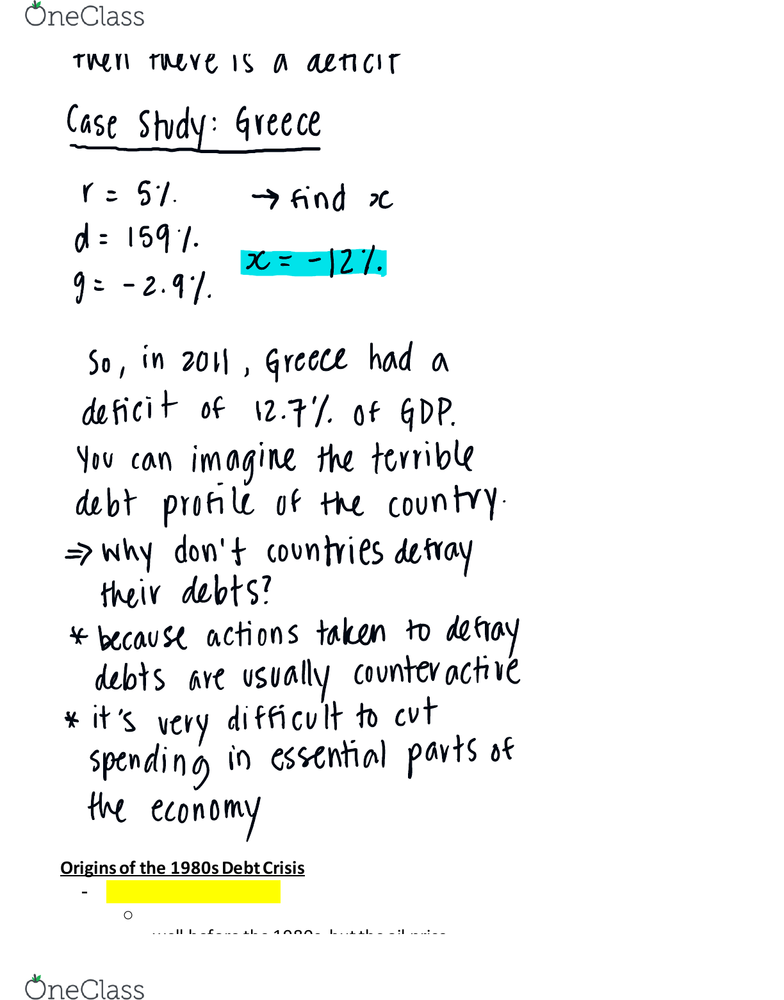 OneClass
then there is a deficit
Case Study: Greece
r = 5%. → find x
d = 159%.
x = -12%.
g = -2.9%.
So, in 2011, Greece had a
deficit of 12.7% of GDP.
You can imagine the terrible
debt profile of the country.
⇒ Why don't countries defray
their debts?
* because actions taken to defray
debts are usually counteractive
* it's very difficult to cut
spending in essential parts of
the economy
Origins of the 1980s Debt Crisis
-
○
well before the 1980s, but the oil price
OneClass